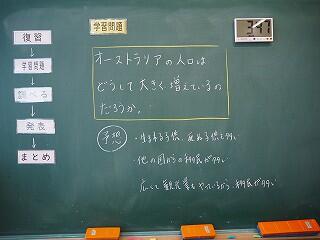 復習
学習問題
調べる
発表
まとめ
学習問題
3:47
オーストラリアの人口は
どうして大きく増えているの
だろうか。
予想
・生まれる子供、死ぬ子供も少ない
・他の国からの移民が多い
広くて観光業もやっているから、移民が多い